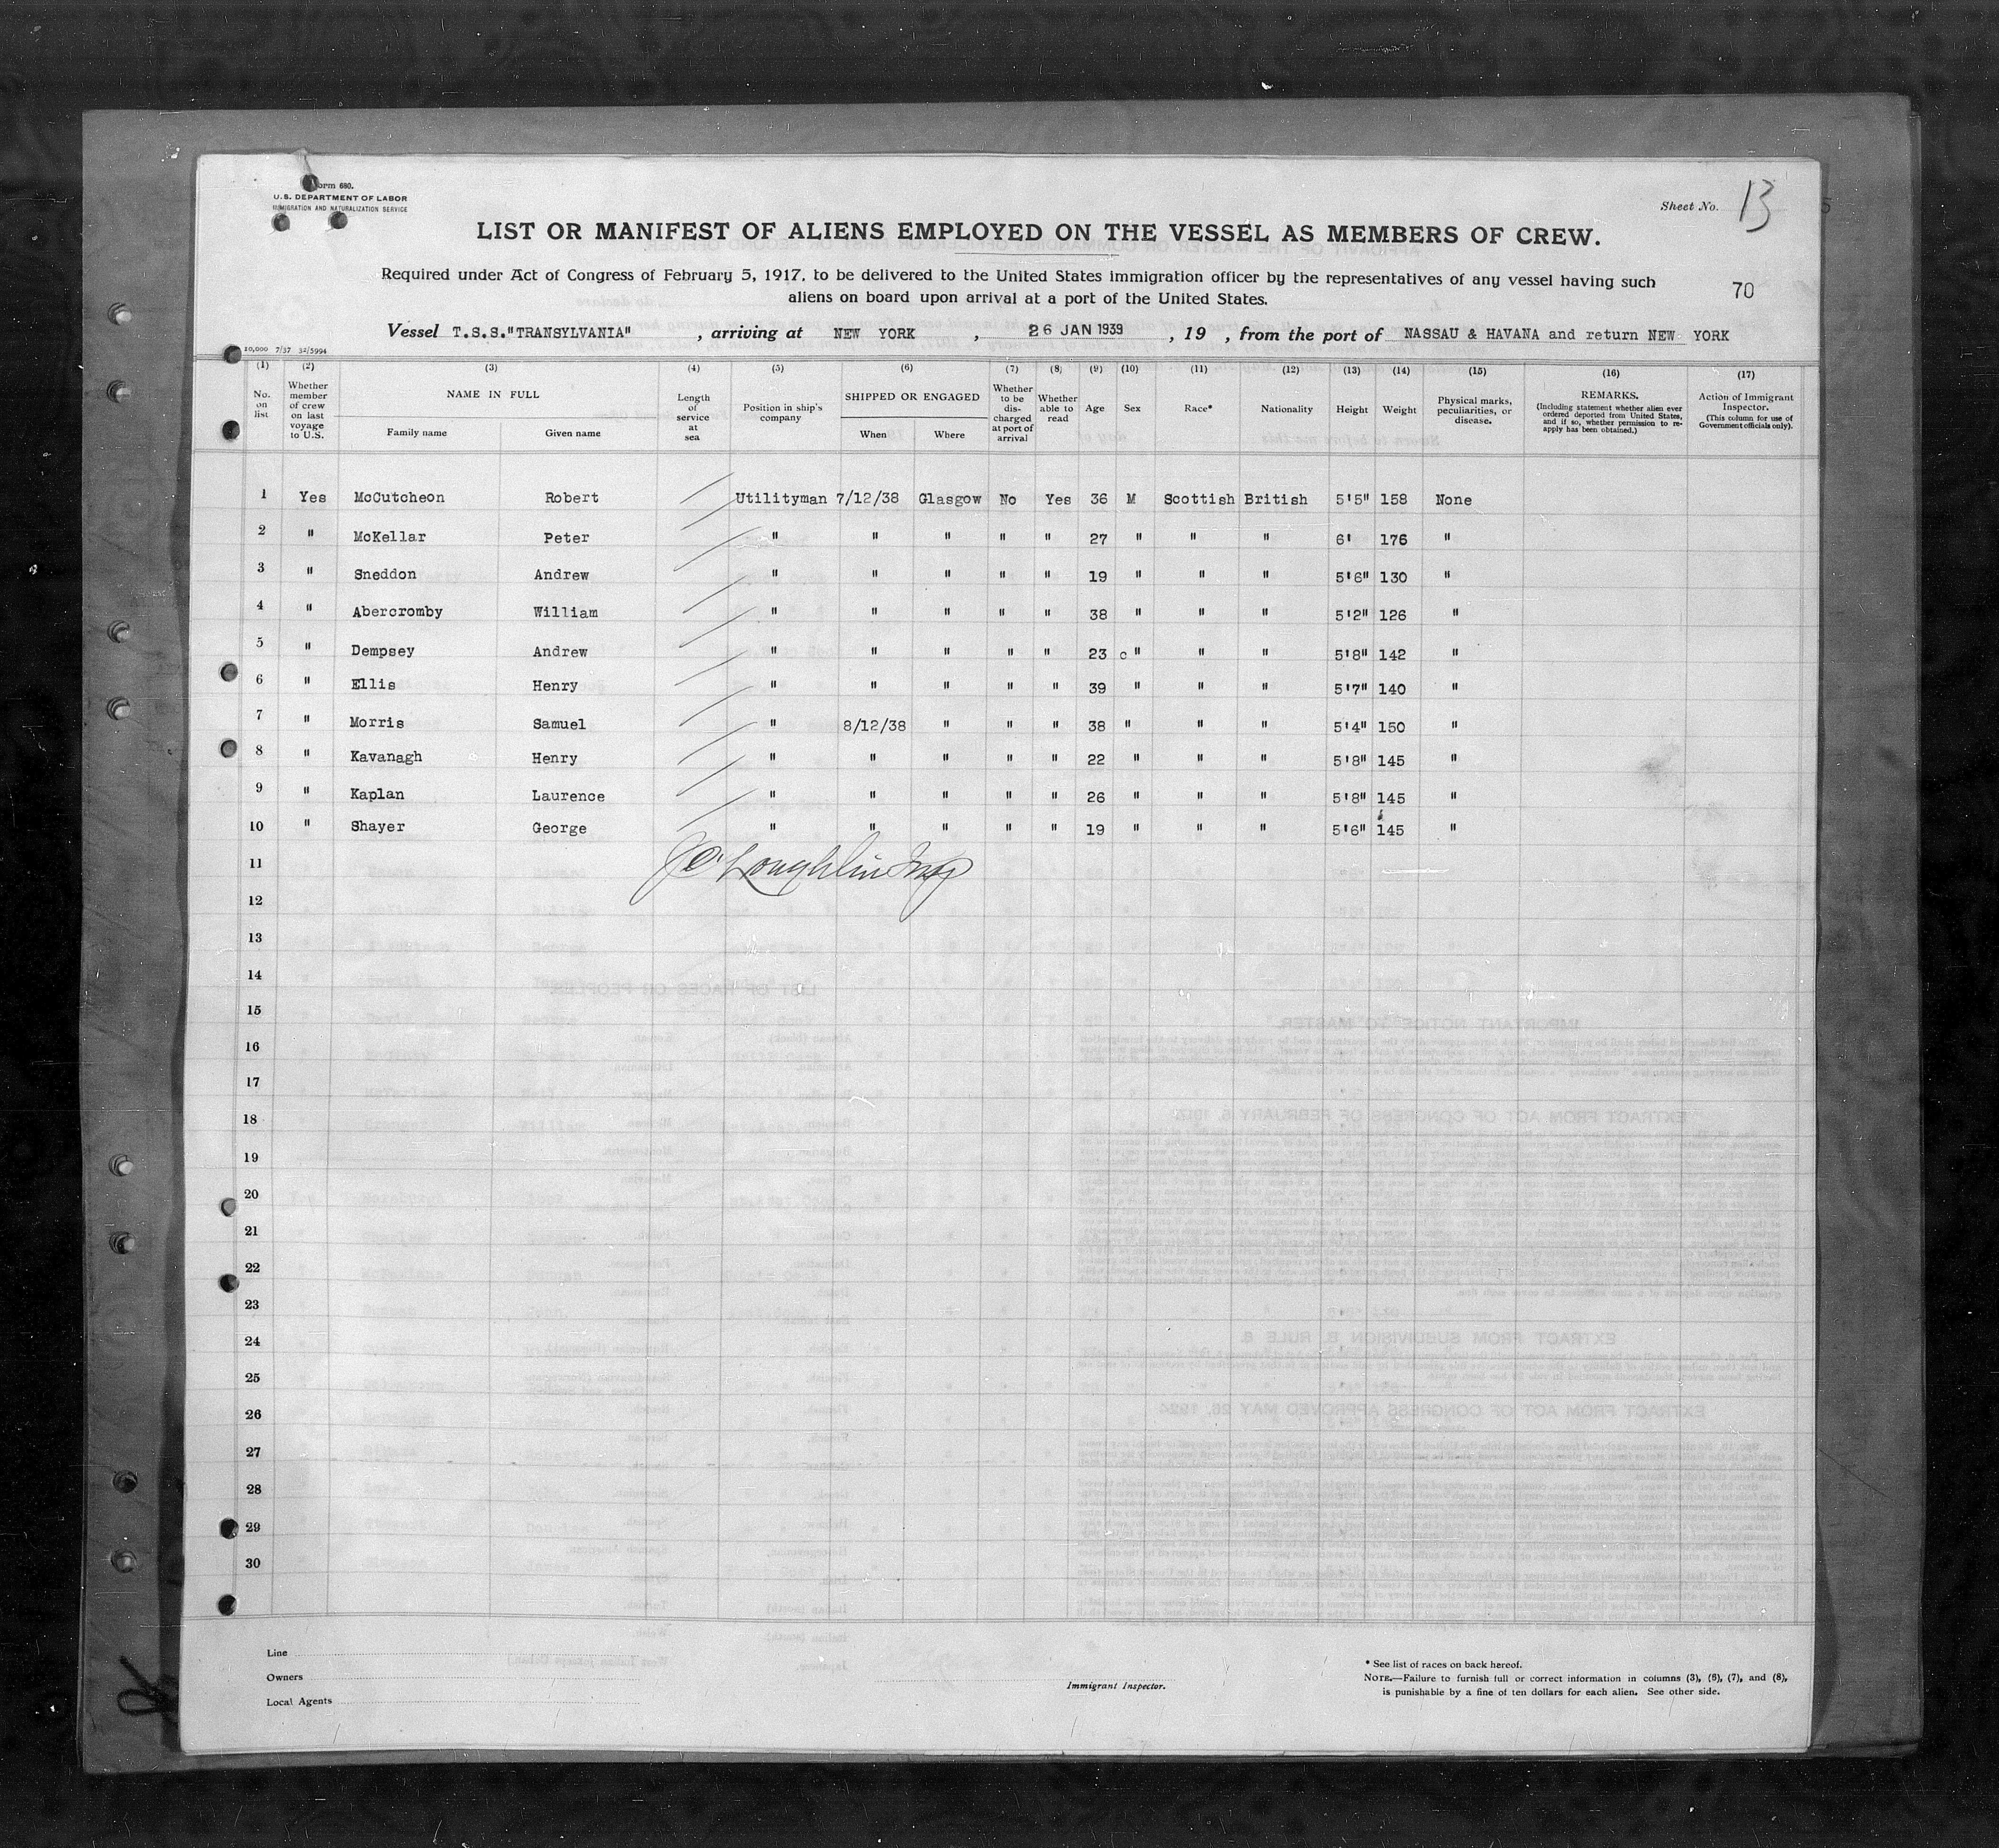 Form 680.
U.S. DEPARTMENT OF LABOR
IMMIGRATION AND NATURALIZATION SERVICE
Sheet No. 13
LIST OR MANIFEST OF ALIENS EMPLOYED ON THE VESSEL AS MEMBERS OF CREW.
Required under Act of Congress of February 5, 1917, to be delivered to the United States immigration officer by the representatives of any vessel having such
aliens on board upon arrival at a port of the United States.
70
Vessel T.S.S."TRANSYLVANIA", arriving at NEW YORK, 26 JAN 1939, 19 , from the port of NASSAU & HAVANA and return NEW YORK
10,000 7/37 32/5994
(1) (2) (3) (4) (5) (6) (7) (8) (9) (10) (11) (12) (13) (14) (15) (16) (17)
No. on list
Whether member of crew on last voyage to U.S.
NAME IN FULL
Family name Given name
Length of service at sea
Position in ship's company
SHIPPED OR ENGAGED
When Where
Whether to be discharged at port of arrival
Whether able to read
Age
Sex
Race*
Nationality
Height
Weight
Physical marks, peculiarities, or disease.
REMARKS.
(Including statement whether alien ever ordered deported from United States, and if so, whether permission to re-apply has been obtained.)
Action of Immigrant Inspector.
(This column for use of Government officials only).
1 Yes McCutcheon Robert Utilityman 7/12/38 Glasgow No Yes 36 M Scottish British 5'5" 158 None
2 " McKellar Peter " " " " " 27 " " " 6' 176 "
3 " Sneddon Andrew " " " " " 19 " " " 5'6" 130 "
4 " Abercromby William " " " " " 38 " " " 5'2" 126 "
5 " Dempsey Andrew " " " " " 23 c " " " 5'8" 142 "
6 " Ellis Henry " " " " " 39 " " " 5'7" 140 "
7 " Morris Samuel " 8/12/38 " " " 38 " " " 5'4" 150 "
8 " Kavanagh Henry " " " " " 22 " " " 5'8" 145 "
9 " Kaplan Laurence " " " " " 26 " " " 5'8" 145 "
10 " Shayer George " " " " " 19 " " " 5'6" 145 "
11 O'Loughlin Insp
12
13
14
15
16
17
18
19
20
21
22
23
24
25
26
27
28
29
30
Line
Owners
Local Agents
Immigrant Inspector.
* See list of races on back hereof.
NOTE.—Failure to furnish full or correct information in columns (3), (6), (7), and (8),
is punishable by a fine of ten dollars for each alien. See other side.